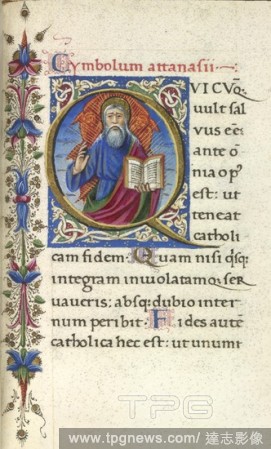 Symbolum attanasii
QVICVQ̃
vult sal
vus eẽ:
ante õ
nia op̃
est: ut
teneat
catholi
cam fidem: Quam nisi q̃sq;
integram inuiolatamq; ser
uaueris: absq; dubio inter
num peribit. Fides autẽ
catholica hec est: ut unum
TPG
www.tpgnews.com/ 達志影像